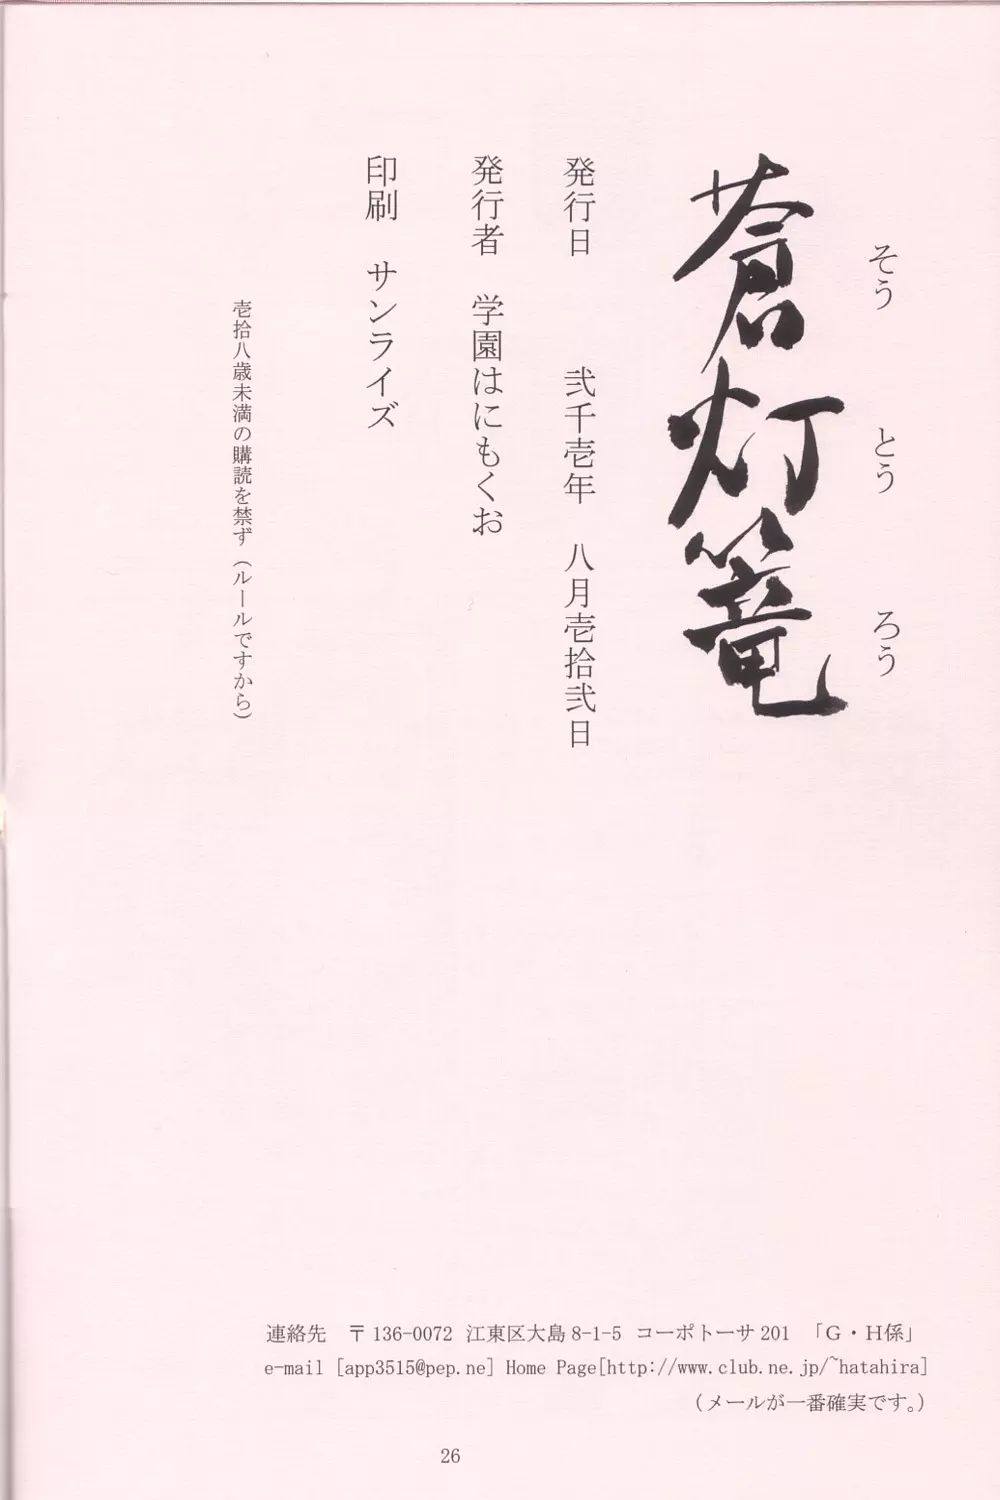 蒼灯篭
そう とう ろう
発行日 弐千壱年 八月壱拾弐日
発行者 学園はにもくお
印刷 サンライズ
壱拾八歳未満の購読を禁ず（ルールですから）
連絡先 〒136-0072 江東区大島8-1-5 コーポトーサ201 「Ｇ・Ｈ係」
e-mail [app3515@pep.ne] Home Page[http://www.club.ne.jp/~hatahira]
（メールが一番確実です。）
26